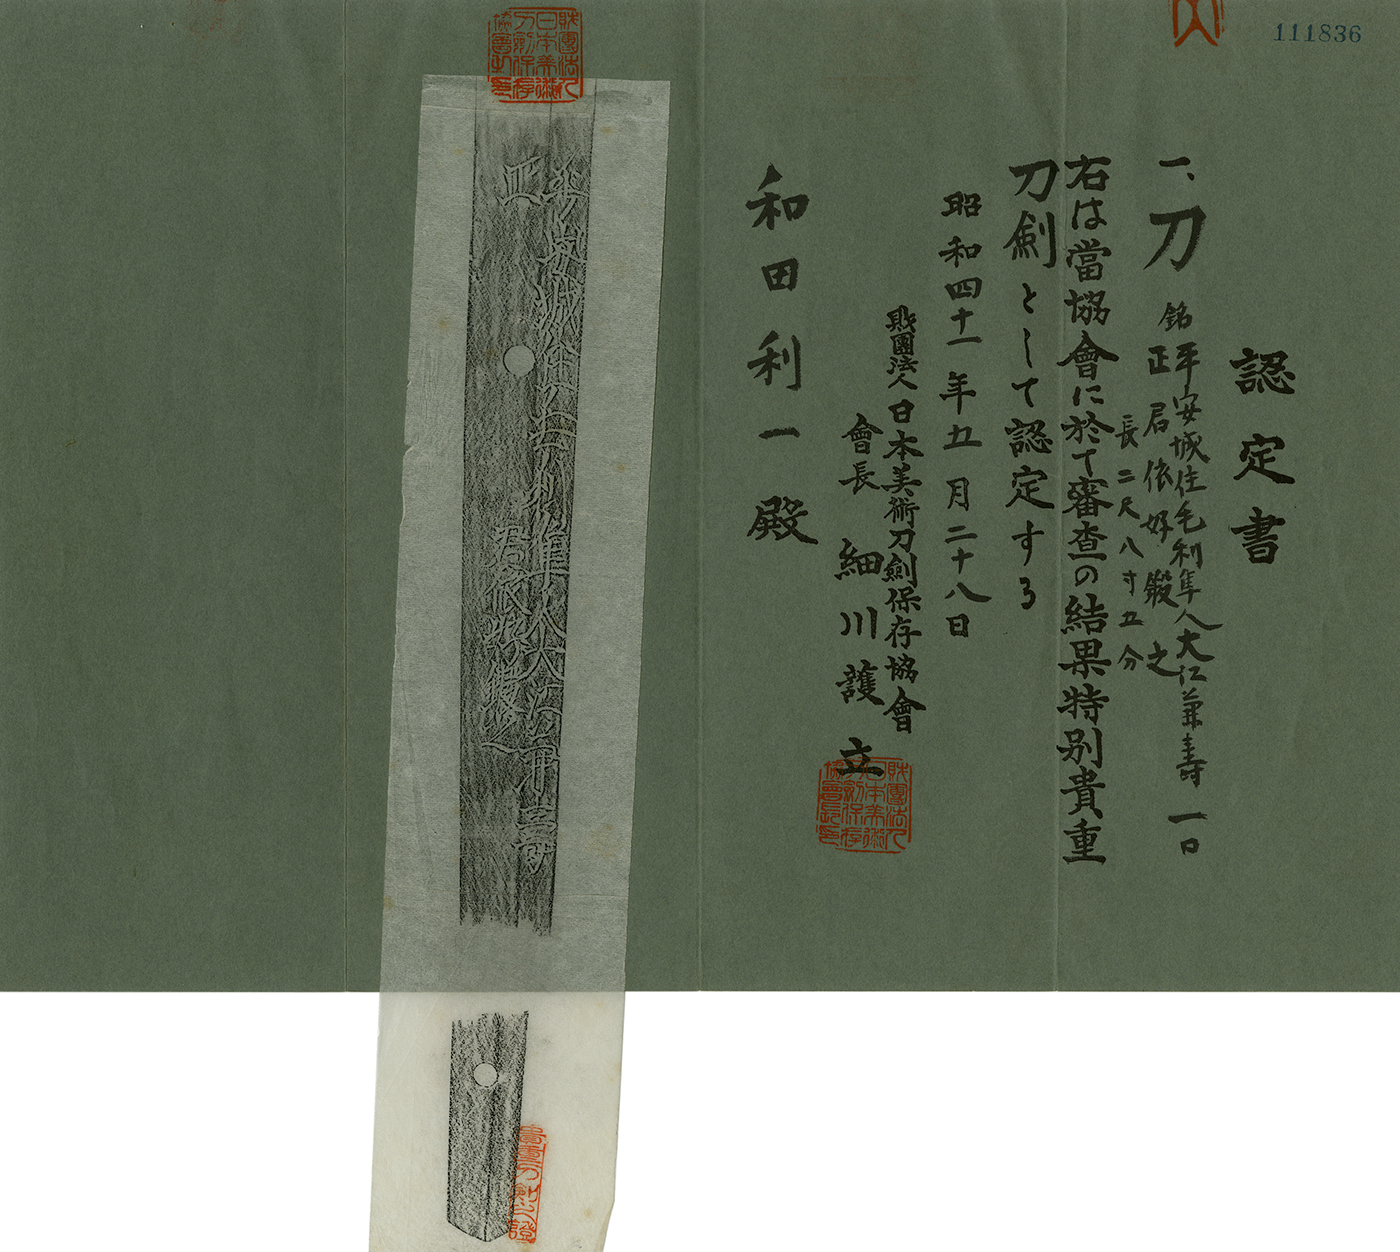 111836
認定書
一、刀 銘 平安城住毛利隼人大江兼壽 一口
正君依好鍛之
長二尺八寸五分
右は當協會に於て審査の結果特別貴重
刀劍として認定する
昭和四十一年五月二十八日
財團法人日本美術刀劍保存協會
會長 細川護立
和田利一殿
財團法人日本美術刀劍保存協會長印
財團法人日本美術刀劍保存協會之印
貴重刀劍之證